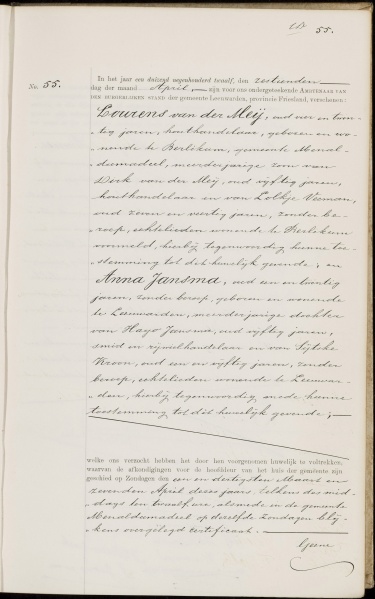 55.
No. 55.
In het jaar een duizend negenhonderd twaalf, den zestienden
dag der maand April, zijn voor ons ondergeteekende Ambtenaar van
den burgerlijken stand der gemeente Leeuwarden, provincie Friesland, verschenen:
Lourens van der Meij, oud vier en twin-
tig jaren, houthandelaar, geboren en wo-
nende te Berlikum, gemeente Menal-
dumadeel, meerderjarige zoon van
Dirk van der Meij, oud vijftig jaren,
houthandelaar en van Lolkje Veeman,
oud zeven en veertig jaren, zonder be-
roep, echtelieden wonende te Berlikum
voormeld, hierbij tegenwoordig hunne toe-
stemming tot dit huwelijk gevende; en
Anna Jansma, oud een en twintig
jaren, zonder beroep, geboren en wonende
te Leeuwarden, meerderjarige dochter
van Hayo Jansma, oud vijftig jaren,
smid en rijwielhandelaar en van Sijtske
Kroon, oud een en vijftig jaren, zonder
beroep, echtelieden wonende te Leeuwar-
den, hierbij tegenwoordig, mede hunne
toestemming tot dit huwelijk gevende;
welke ons verzocht hebben het door hen voorgenomen huwelijk te voltrekken,
waarvan de afkondigingen voor de hoofddeur van het huis der gemeente zijn
geschied op Zondagen den een en dertigsten Maart en
zevenden April dezes jaars, telkens des mid-
dags ten twaalf ure, alsmede in de gemeente
Menaldumadeel op dezelfde zondagen blij-
kens overgelegd certificaat.
Geene